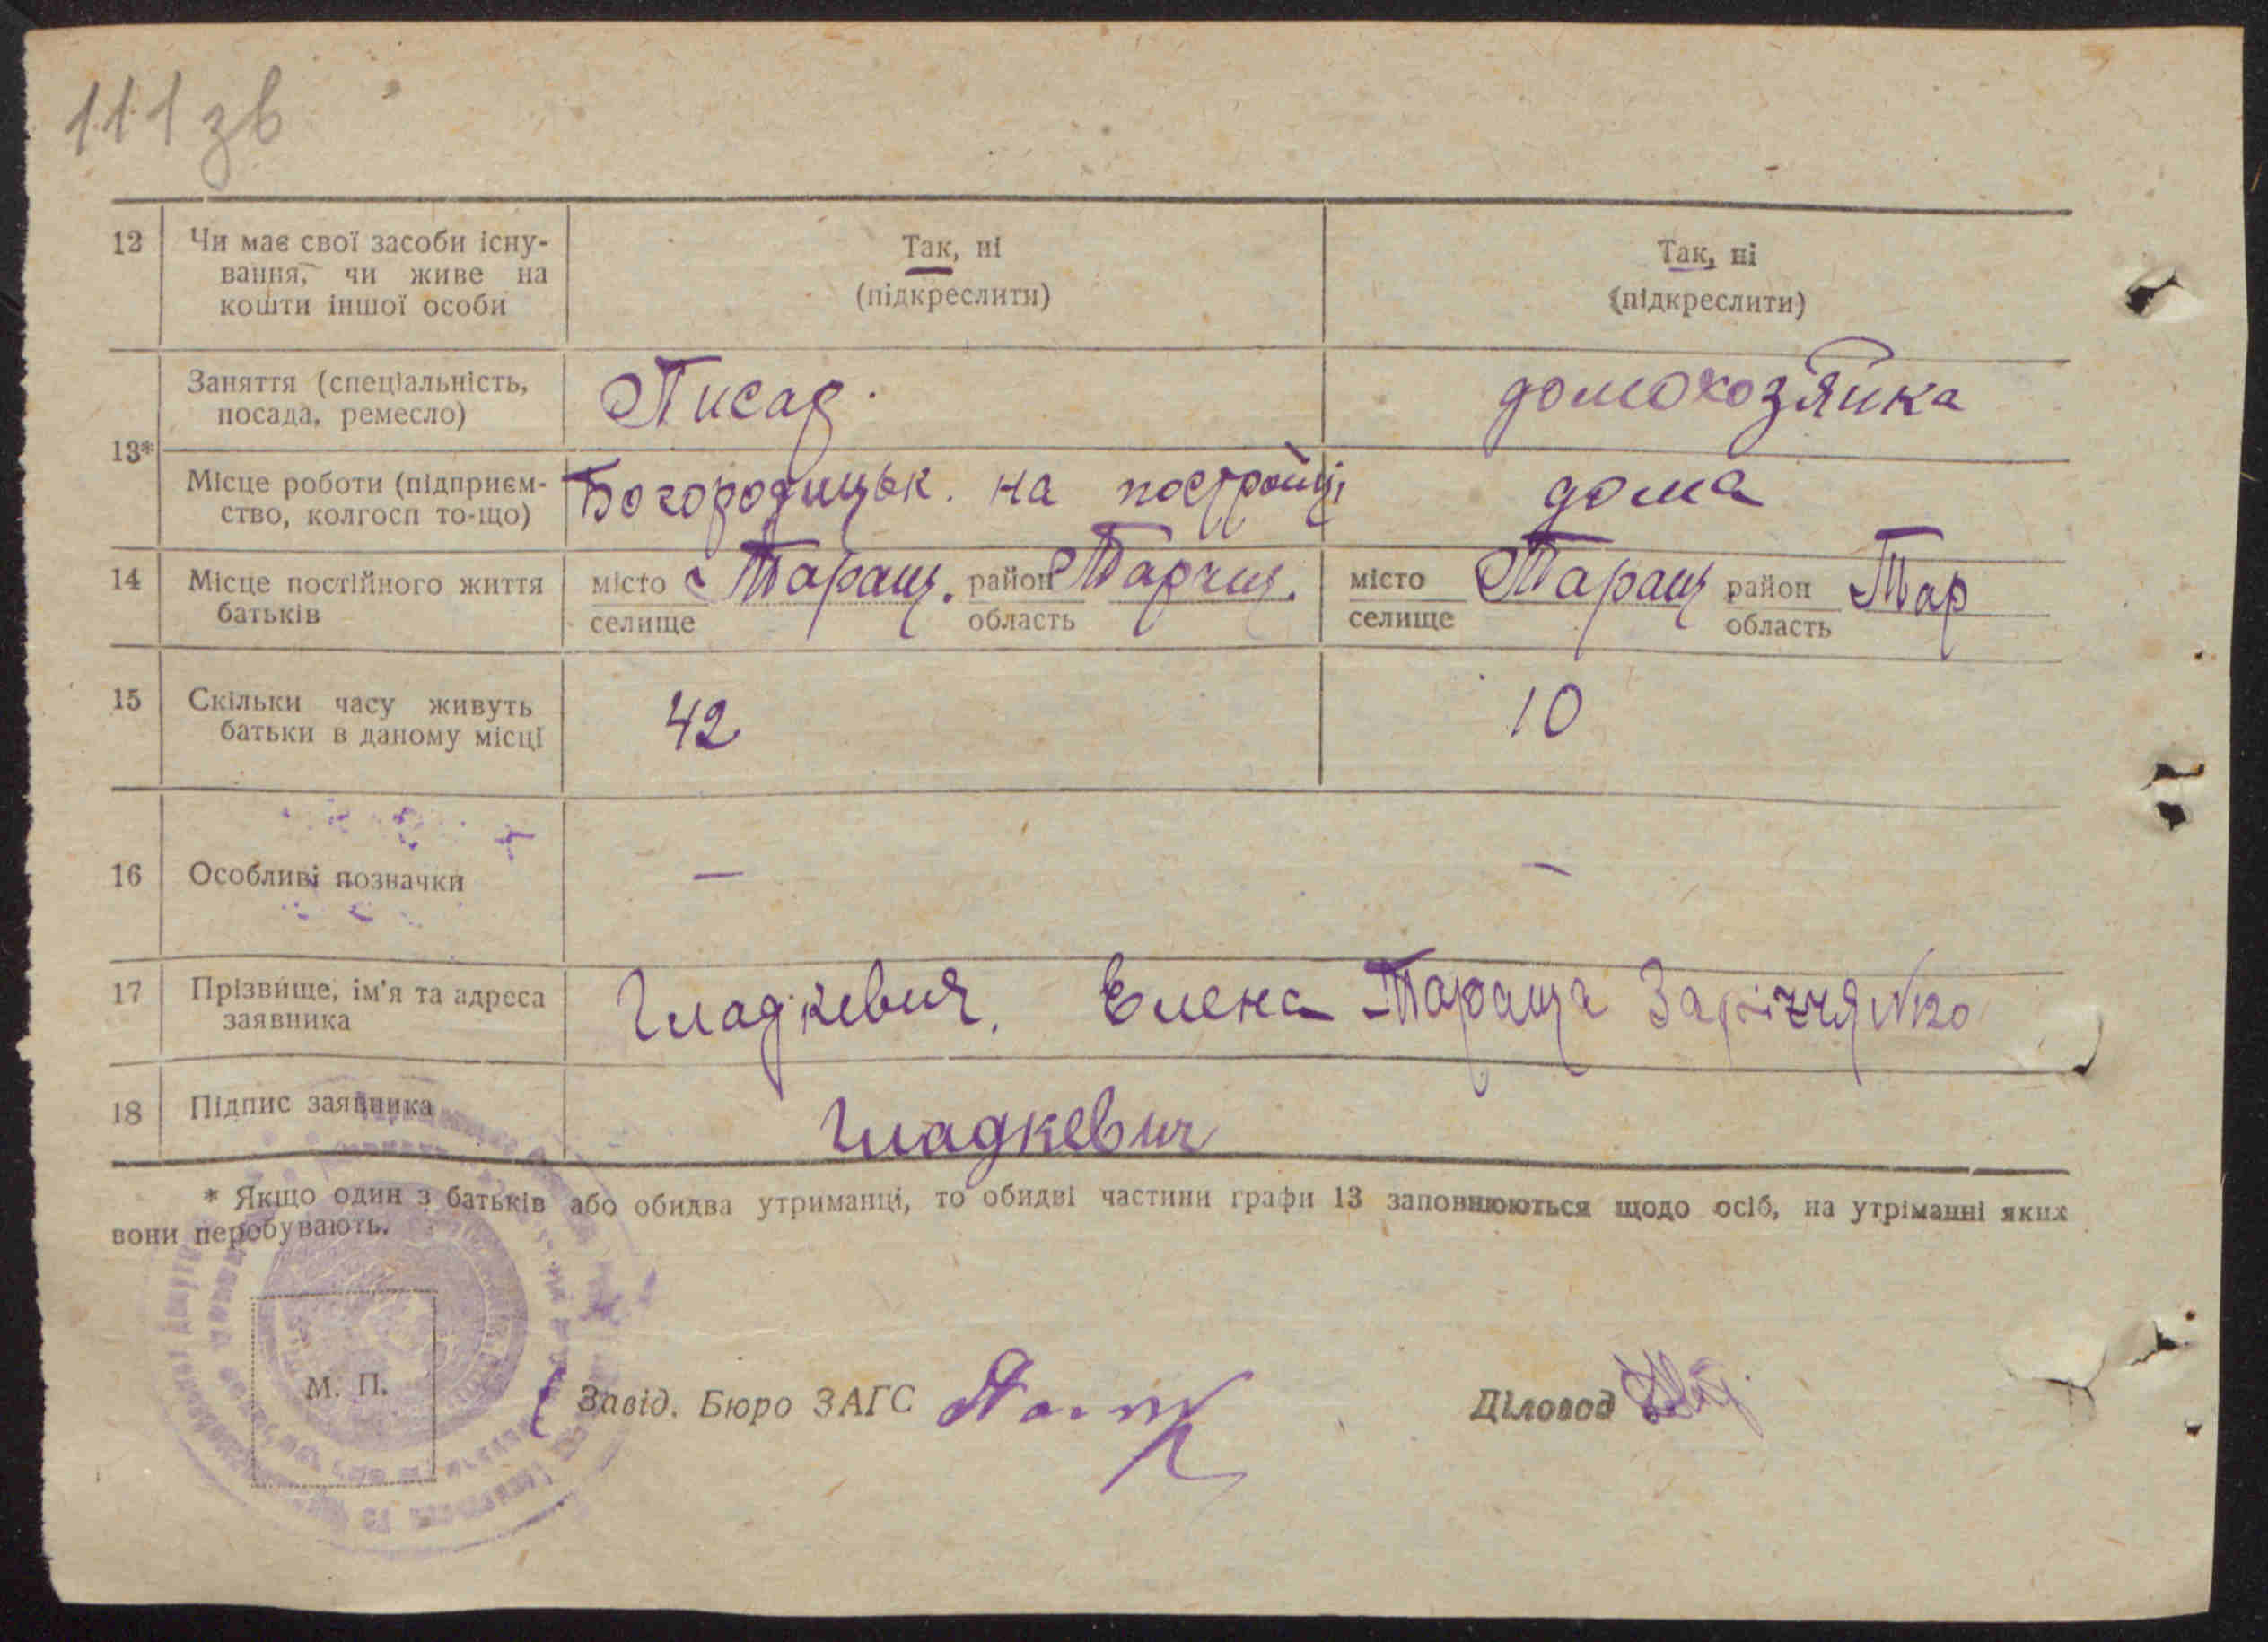 111 зв
12 Чи має свої засоби існу- Так, ні Так, ні
вання, чи живе на (підкреслити) (підкреслити)
кошти іншої особи
13* Заняття (спеціальність, Писар. домохозяйка
посада, ремесло)
Місце роботи (підприєм- Богородицьк. на постройці дома
ство, колгосп то-що)
14 Місце постійного життя місто Таращ. район Таращ. місто Таращ район Тар
батьків селище область селище область
15 Скільки часу живуть 42 10
батьки в даному місці
16 Особливі позначки — —
17 Прізвище, ім'я та адреса Гладкевич. Елена Тараща Заріччя №20
заявника
18 Підпис заявника Гладкевич
* Якщо один з батьків або обидва утриманці, то обидві частини графи 13 заповнюються щодо осіб, на утріманні яких
вони перебувають.
М. П.
Завід. Бюро ЗАГС Діловод